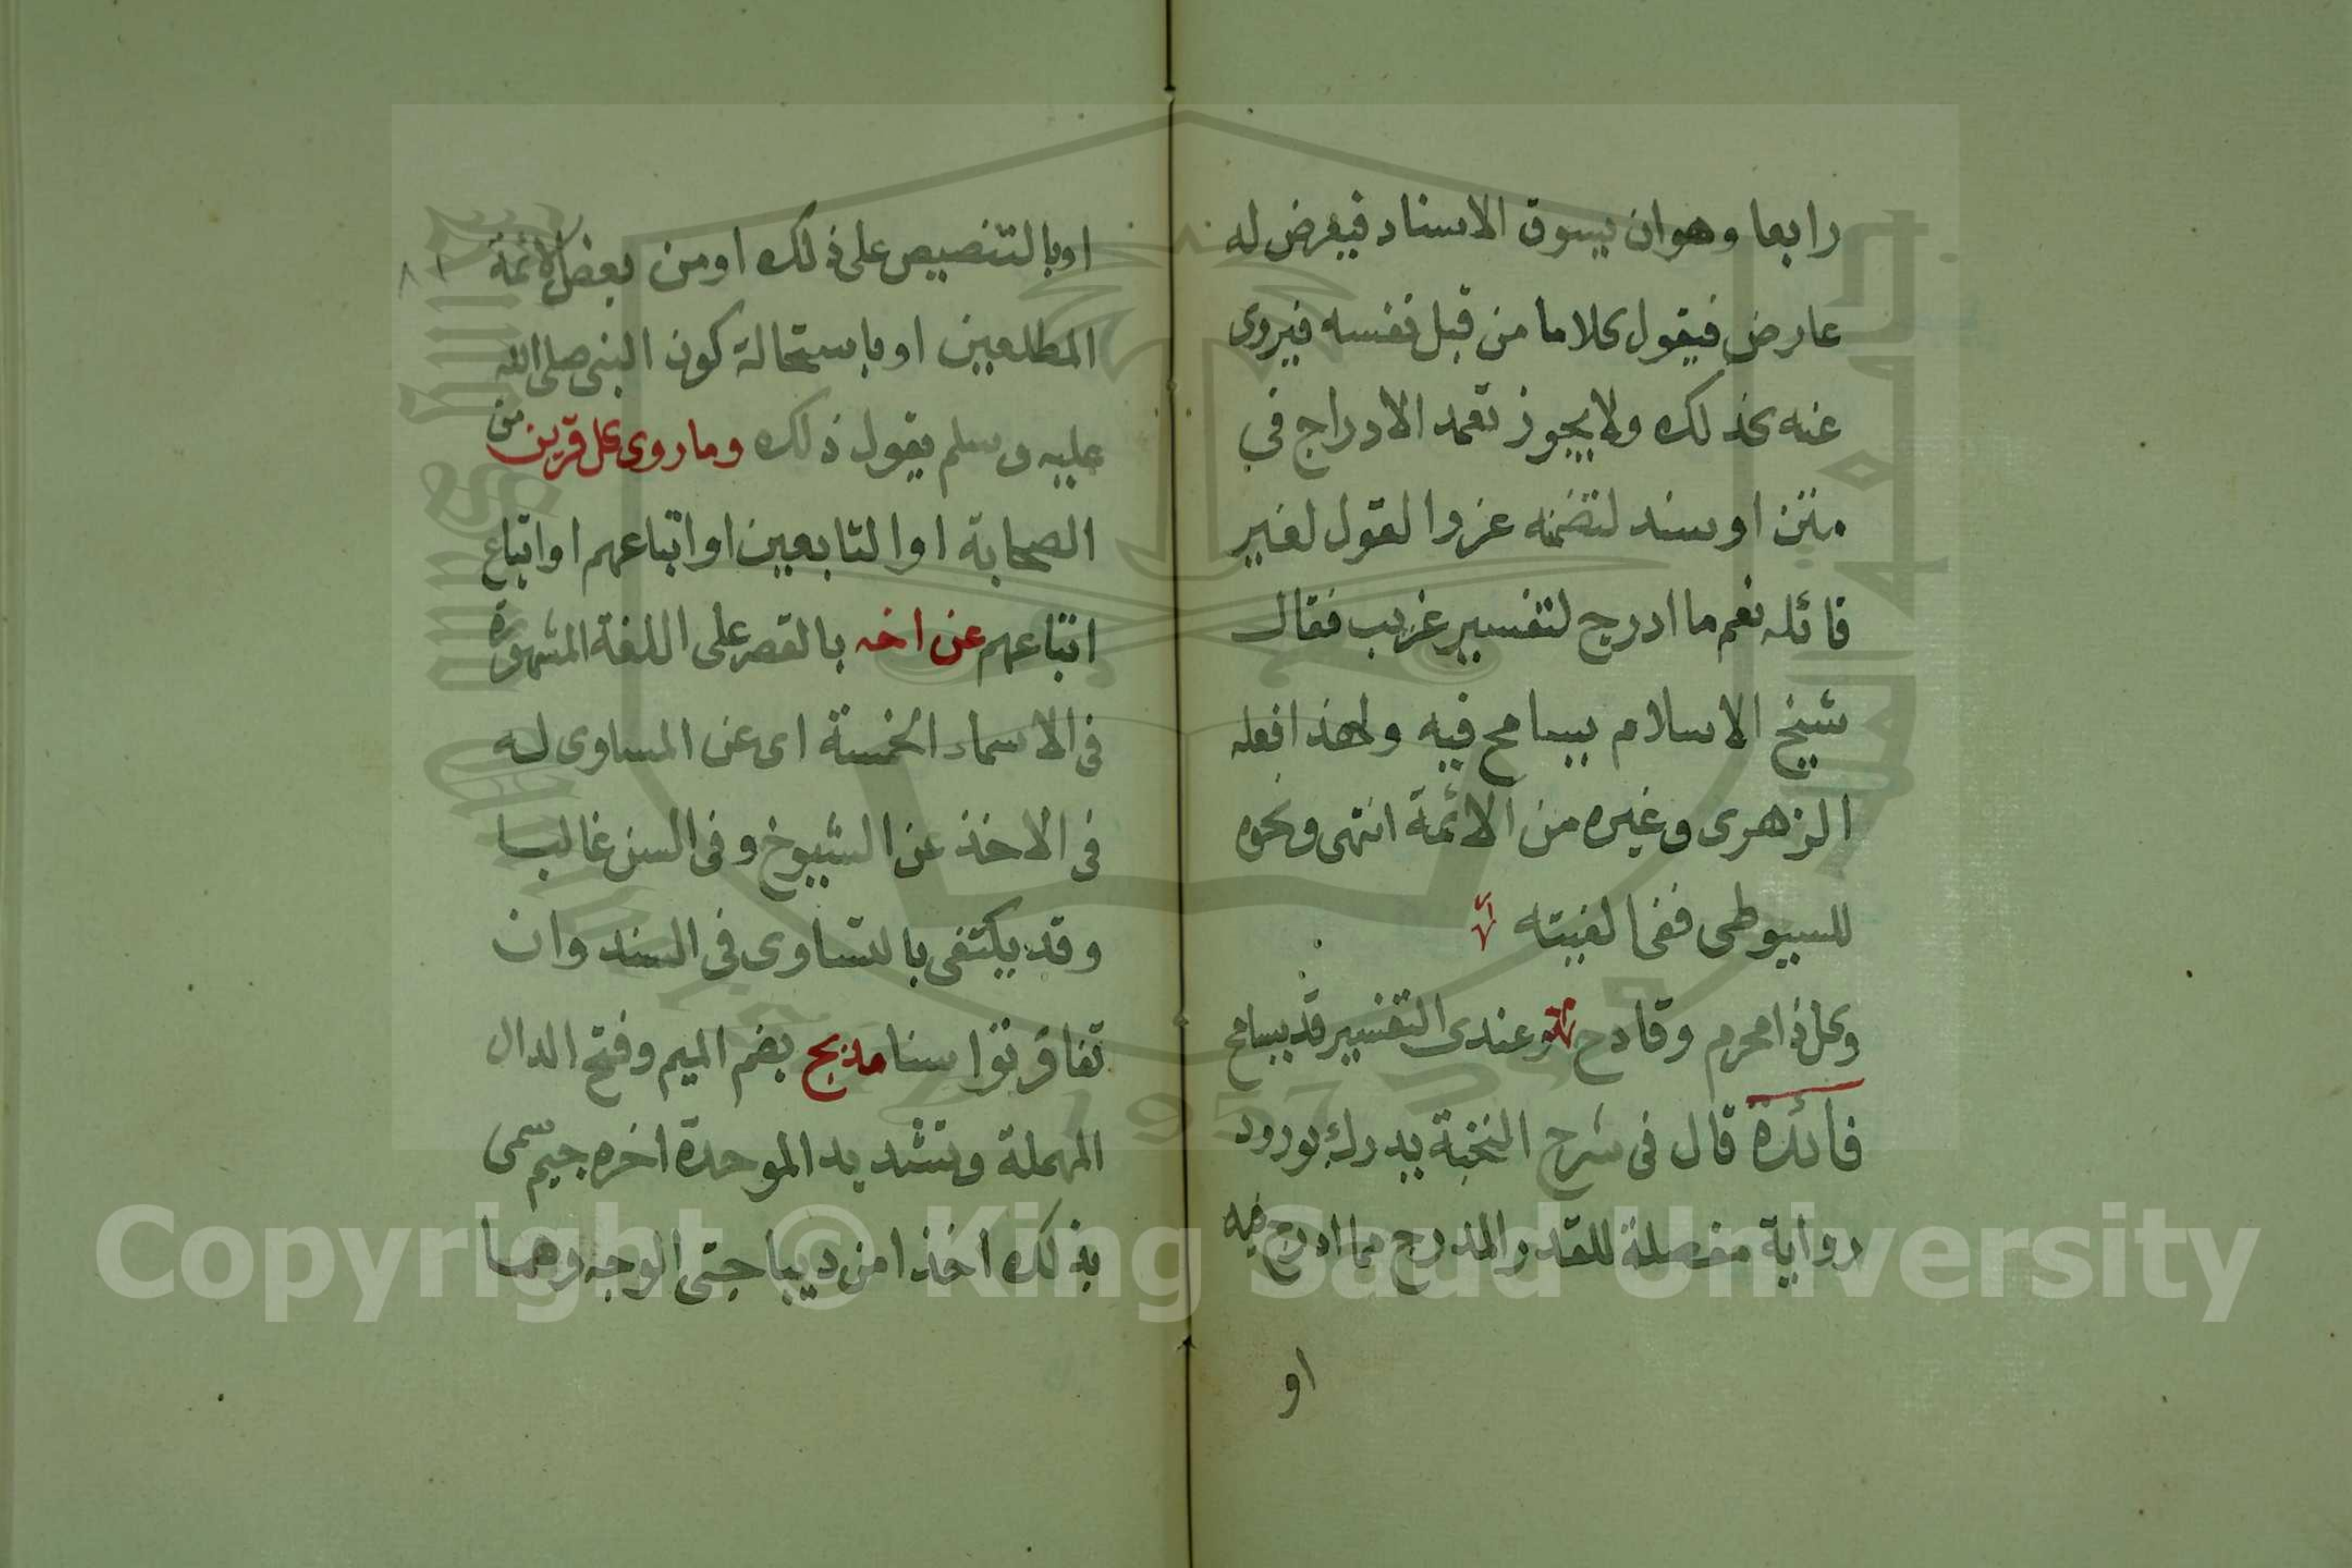 رابعا وهو ان يسوق الاسناد فيعرض له
عارض فيقول كلاما من قبل نفسه فيروى
عنه كذلك ولا يجوز تعمد الادراج في
متن او سند لتضمنه عزوا لقول لغير
قائله نعم ما ادرج لتفسير غريب فقال
شيخ الاسلام يسامح فيه ولهذا فعله
الزهرى وغيره من الائمة انتهى ونحوه
للسيوطى ففى الفيته
وكل ذا محرم وقادح وعندى التفسير قد يسامح
فائدة قال فى شرح النخبة يدرك بورود
رواية مفصلة للقدر المدرج مما ادرج فيه
او
او بالتنصيص على ذلك او من بعض الائمة
المطلعين او باستحالة كون النبى صلى الله
عليه وسلم يقول ذلك وما روى كل قرين من
الصحابة او التابعين او اتباعهم او اتباع
اتباعهم عن اخه بالقصر على اللغة المشهورة
فى الاسماء الخمسة اى عن المساوى له
فى الاخذ عن الشيوخ وفى السن غالبا
وقد يكتفى بالتساوى فى السند وان
تفاوتوا سنا مدبج بضم الميم وفتح الدال
المهملة وتشديد الموحدة اخره جيم سمى
بذلك اخذا من ديباجتى الوجه وهما
Copyright © King Saud University
1957